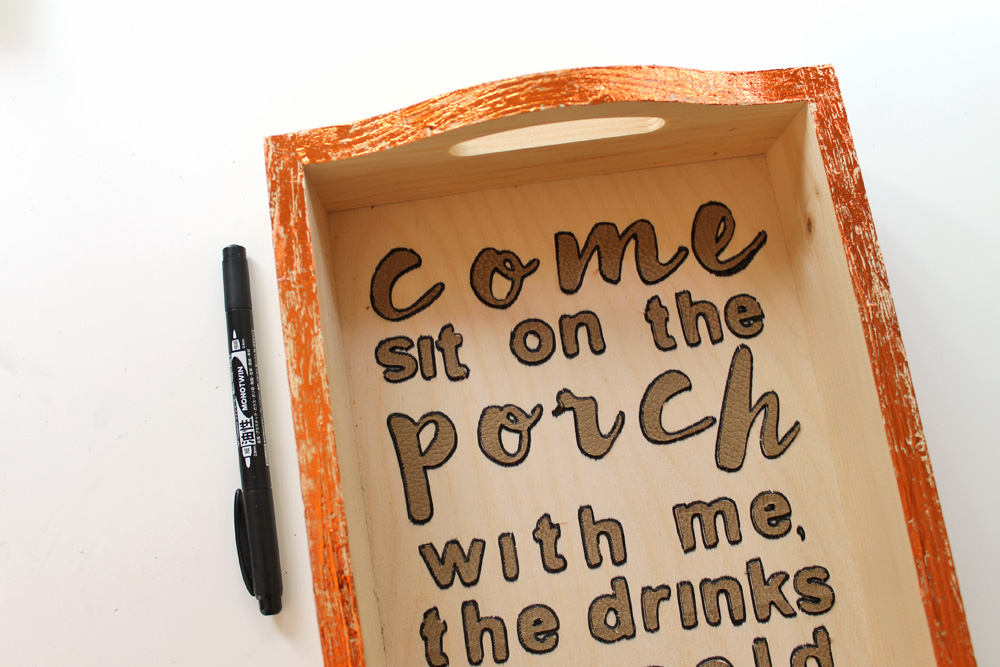 come
sit on the
porch
with me,
the drinks
MONOTWIN
油性